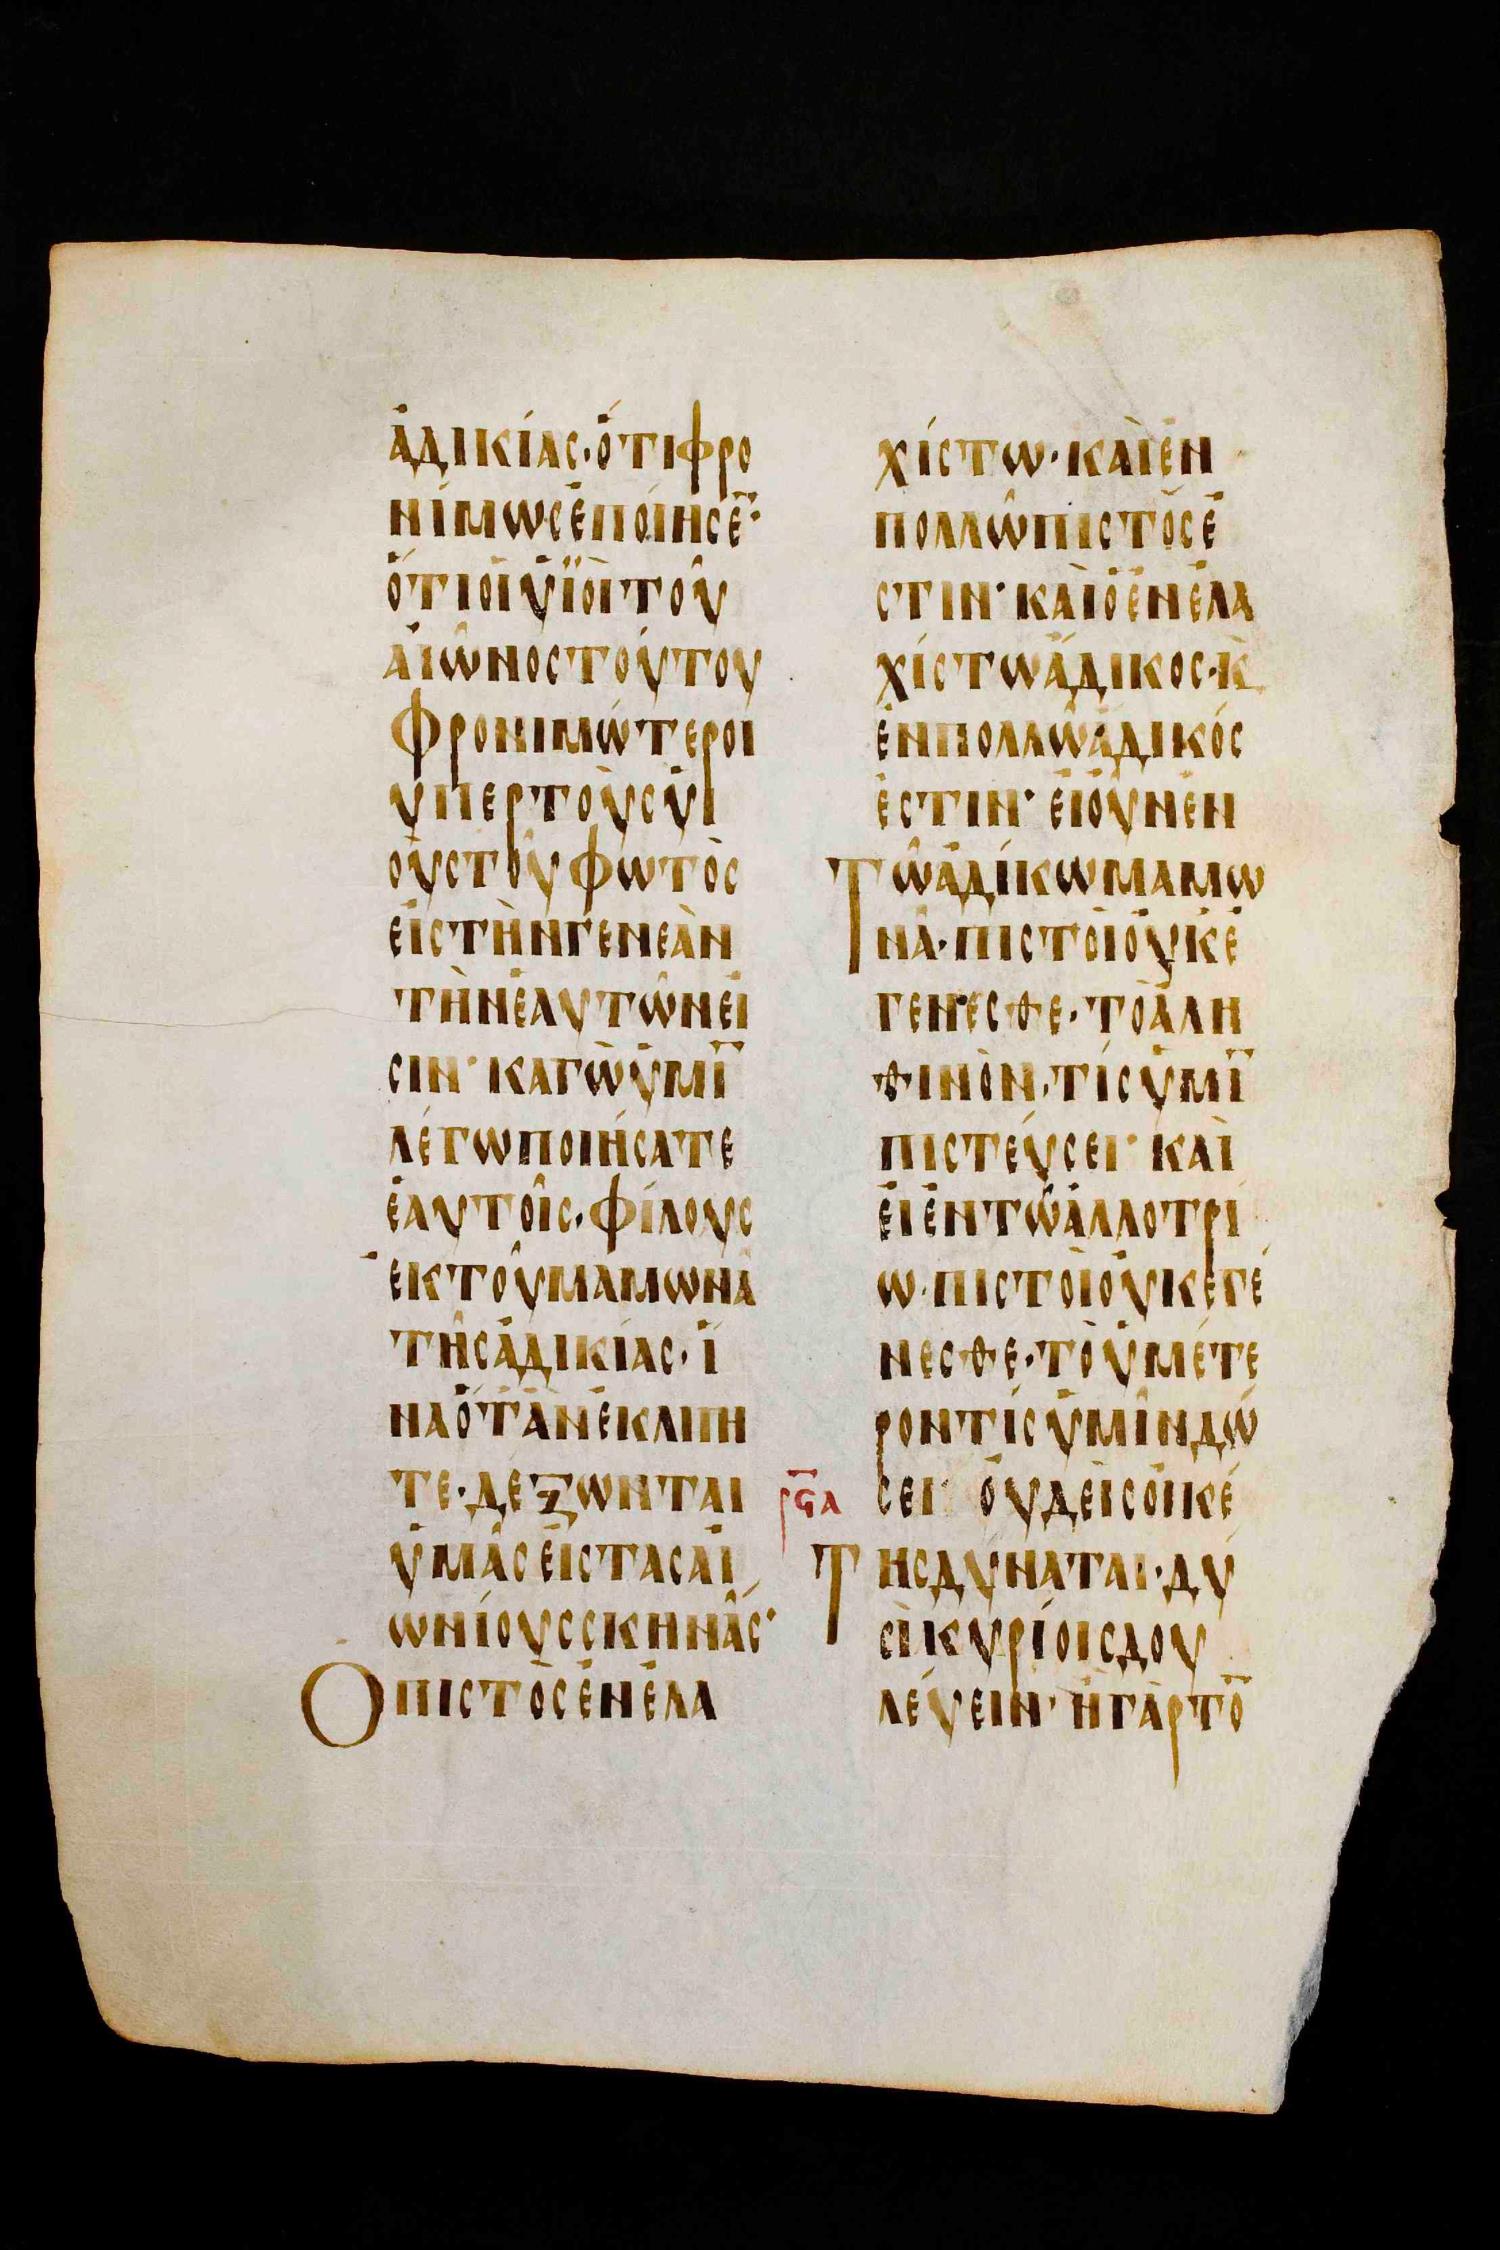 ἀδικίας·ὅτιφρο
νίμωσἐποίησε̅·
ὅτιοἱὑϊοὶτοῦ
αἰῶνοστούτου
φρονιμώτεροι
ὑπερτοὺσὑι
οὺστοῦφωτὸς
εἰστὴνγενεὰν
τὴνἑαυτῶνεἰ
σιν· καγὼὑμῖ̅
λέγωποιήσατε
ἑαυτοῖς·φίλους
ἐκτοῦμαμωνᾶ
τῆσἀδικίας·ἵ
ναὅτἂνἐκλιπη
τε·δέξωνται
ὑμᾶσεἰστασαἰ
ωνίουσσκηνάς·
Οπιστὸσἐνἐλα
χίστω·καὶἐν
πολλῶπιστὸσἐ
στιν· καὶὁἐνἐλα
χίστωἄδικος·κ̀
ἐνπολλῶἄδικός
ἐστιν· εἰοὖνἐν
Τῶἀδίκωμαμω
νᾶ·πιστοὶοὐκἐ
γενεσθε·τὸἀλη
θινὸν·τίσὑμῖ̅
πιστεύσει· καὶ
εἰἐντῶἀλλοτρί
ω·πιστοὶοὐκἐγέ
νεσθε·τὸὑμέτε
ροντίσὑμῖνδώ
ρϟα σει· ὀυδεὶσοἰκέ
Τησδυναται·δυ
σὶκυρίοισδου
λέυειν· ἢγὰρτὸ̅